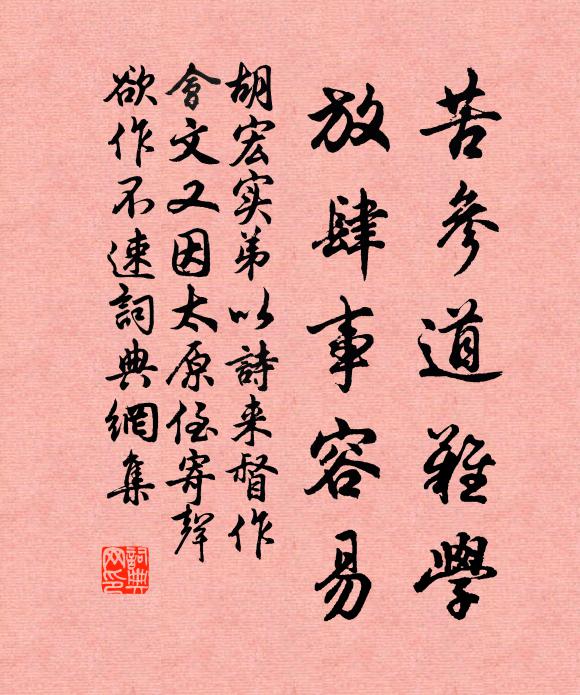 苦參道難學
放肆事容易
胡宏实弟以詩来督作
會文又因太原侄寄聲
欲作不速詞典網集
詞典网印